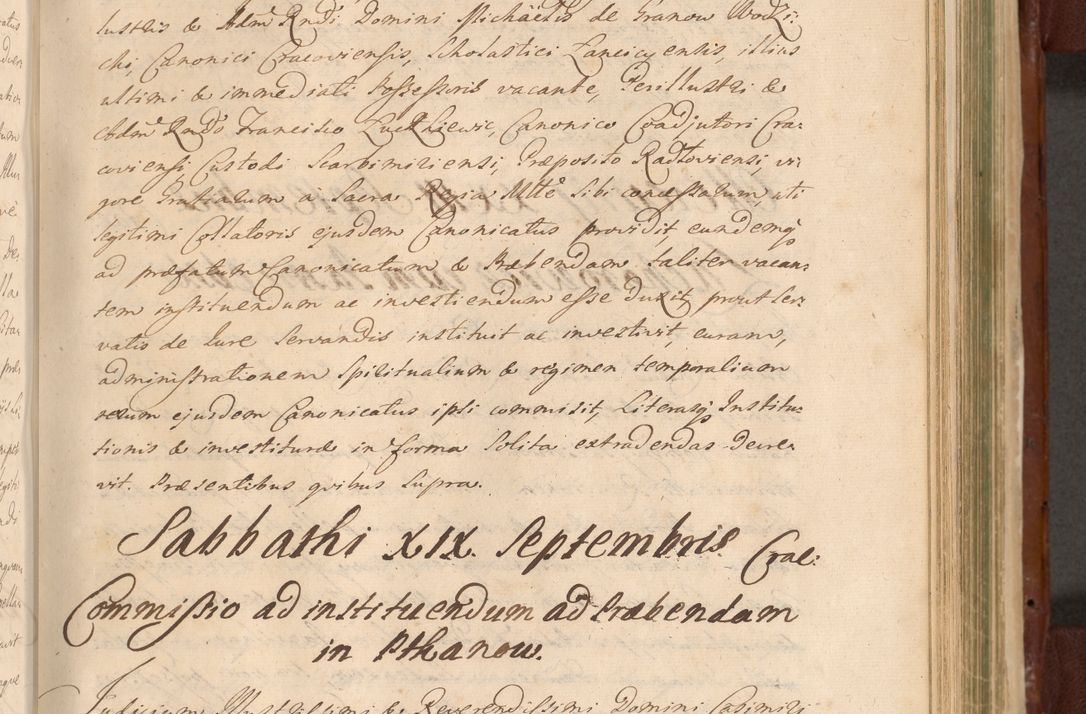 lustris & Adm Rndi Domini Michaelis de Granow Wodzi:
chi, Canonici Cracoviensis, Scholastici Lancicyensis, illius
ultimi & immediati Possessoris vacante, Perillustri &
Adm Rndo Francisco Canonico Coadjutori Cra:
coviensi, Custodi Scarbimiriensi, Præposito Radloviensi, vi:
gore Gratiarum a Sacra Regia Mtte sibi concessarum, uti
legitimi Collatoris ejusdem Canonicatus providit, eundemq
ad præfatum Canonicatum & Præbendam taliter vacan:
tem instituendum ac investiendum esse duxit, prout ser:
vatis de Jure servandis instituit ac investivit, curam,
administrationem spiritualium & regimen temporalium
rerum ejusdem Canonicatus ipsi commisit, Literasq Institu:
tionis & investituræ in forma solita extradendas decre:
vit. Præsentibus quibus supra.
Sabbathi XIX. Septembris Crac:
Commissio ad instituendum ad Præbendam
in Pthanow.
Judicium Illustrissimi & Reverendissimi Domini Casimiri